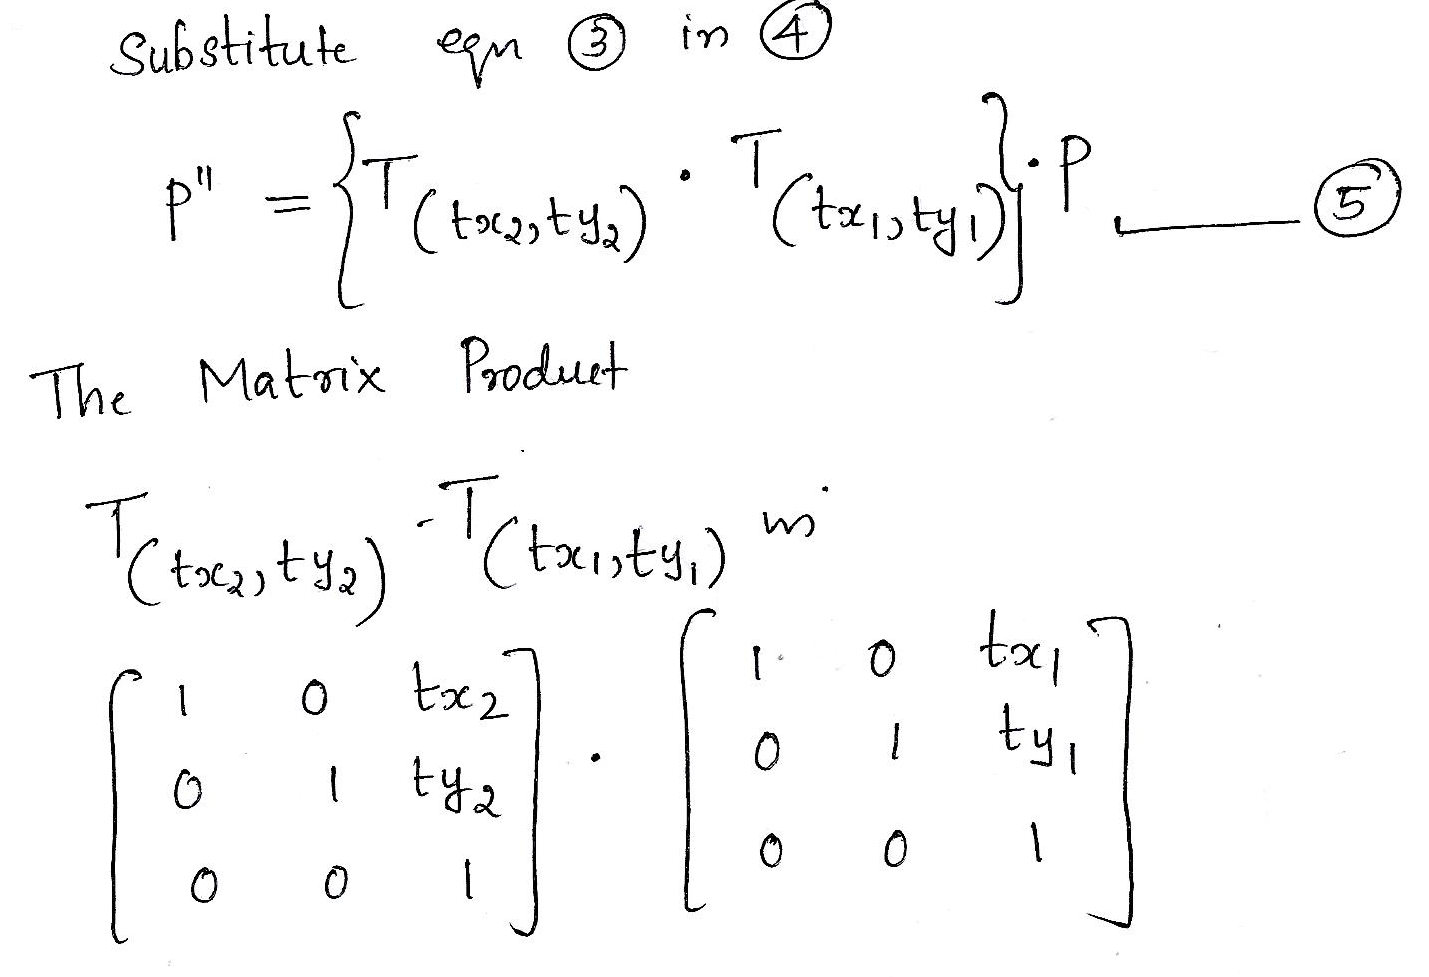 Substitute eqn ③ in ④
P" = {T(tx2,ty2) · T(tx1,ty1)}·P ——— ⑤
The Matrix Product
T(tx2,ty2) · T(tx1,ty1) is
[1 0 tx2] · [1 0 tx1]
[0 1 ty2] [0 1 ty1]
[0 0 1] [0 0 1]